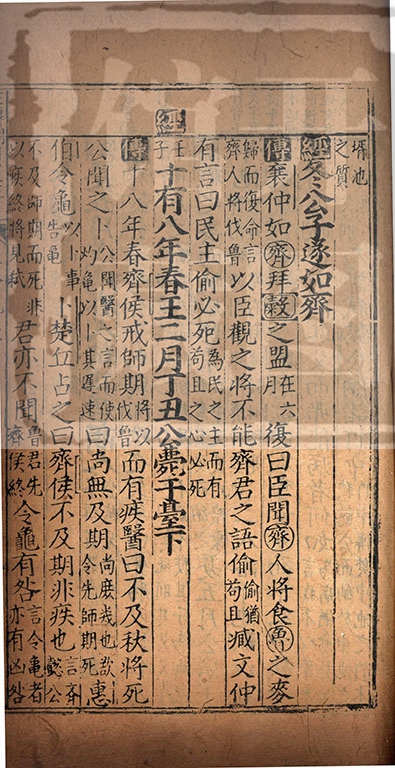 壻也之質
經冬公子遂如齊
傳襄仲如齊拜穀之盟在六月復曰臣聞齊人將食魯之麥
歸而復命言齊人將伐魯以臣觀之將不能齊君之語偷偷猶苟且臧文仲
有言曰民主偷必死為民之主而有苟且之心必死
經壬子十有八年春王二月丁丑公薨于臺下
傳十八年春齊侯戒師期將以伐魯而有疾醫曰不及秋將死
公聞之卜公聞醫之言而使灼龜以卜其遲速曰尚無及期尚庶幾也欲令先師期死惠
伯令龜以卜事告龜卜楚丘占之曰齊侯不及期非疾也言齊懿公
不及師期而死非以疾終將見弑君亦不聞魯君先齊侯終令龜有咎言令龜者亦有凶咎